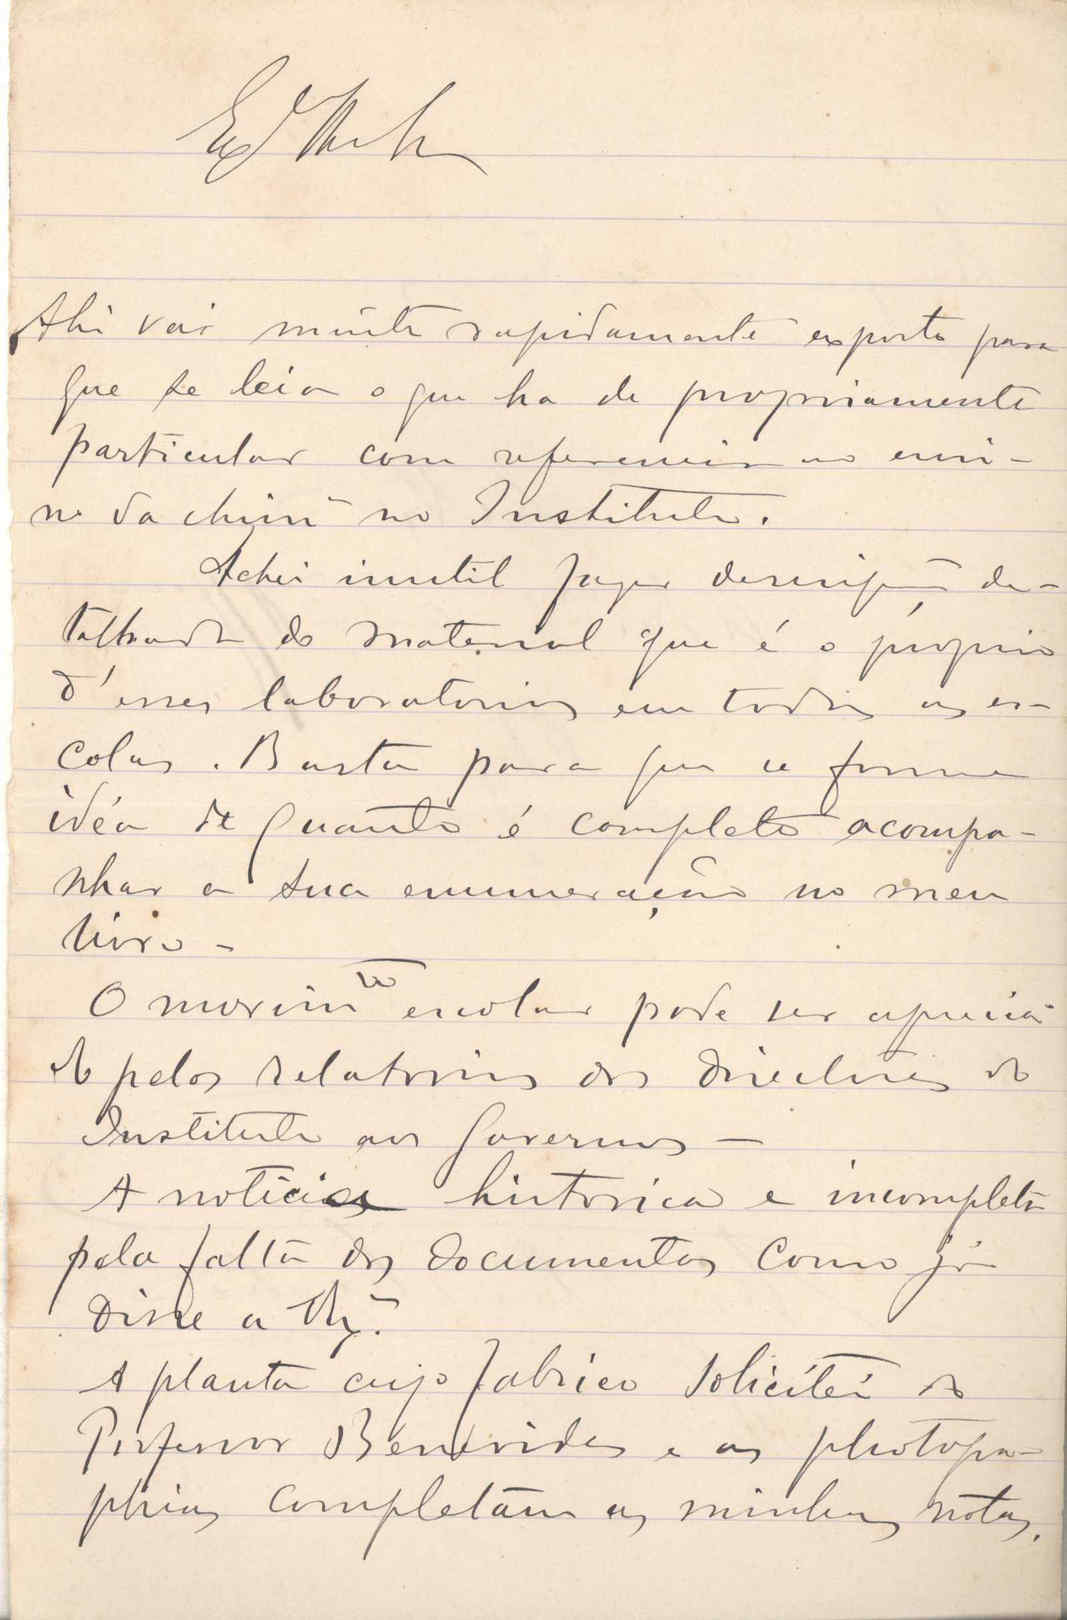 Ahi vai muito rapidamente exposto para
que se leia o que ha de propriamente
particular com referencia ao ensi-
no da chimi no Instituto.
Achei inutil fazer descripção de-
talhada do material que é o proprio
d'esses laboratorios em todas as es-
colas. Basta para que se forme
idéa de quanto é completo acompa-
nhar a sua enumeração no meu
livro -
O movimto escolar pode ser aprecia
do pelos relatorios dos directores do
Instituto aos Governos -
A noticia historica e incompleta
pela falta dos documentos como já
disse a
A planta cujo fabrico solicitei do
Professor Benevides e as photogra-
phias completam as minhas notas.